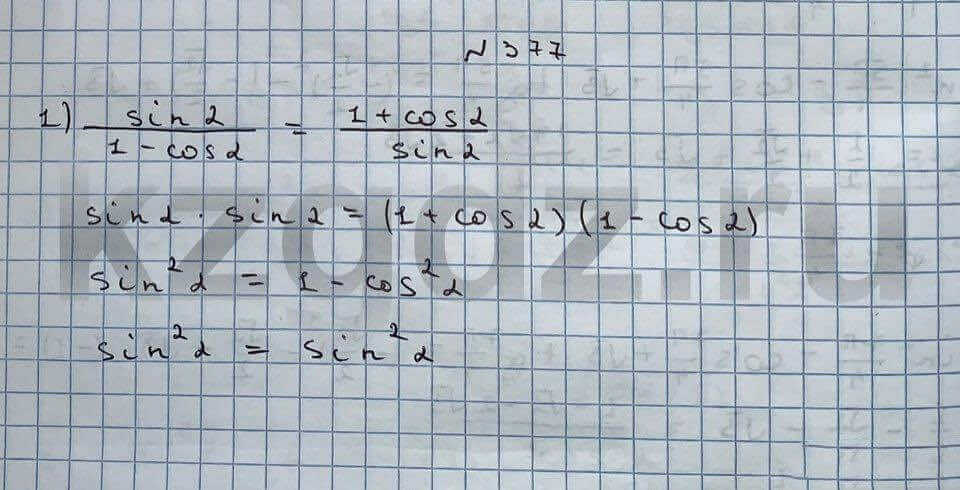 N 377
1) sin α / 1 - cos α = 1 + cos α / sin α
sin α · sin α = (1 + cos α)(1 - cos α)
sin² α = 1 - cos² α
sin² α = sin² α
kzgdz.ru